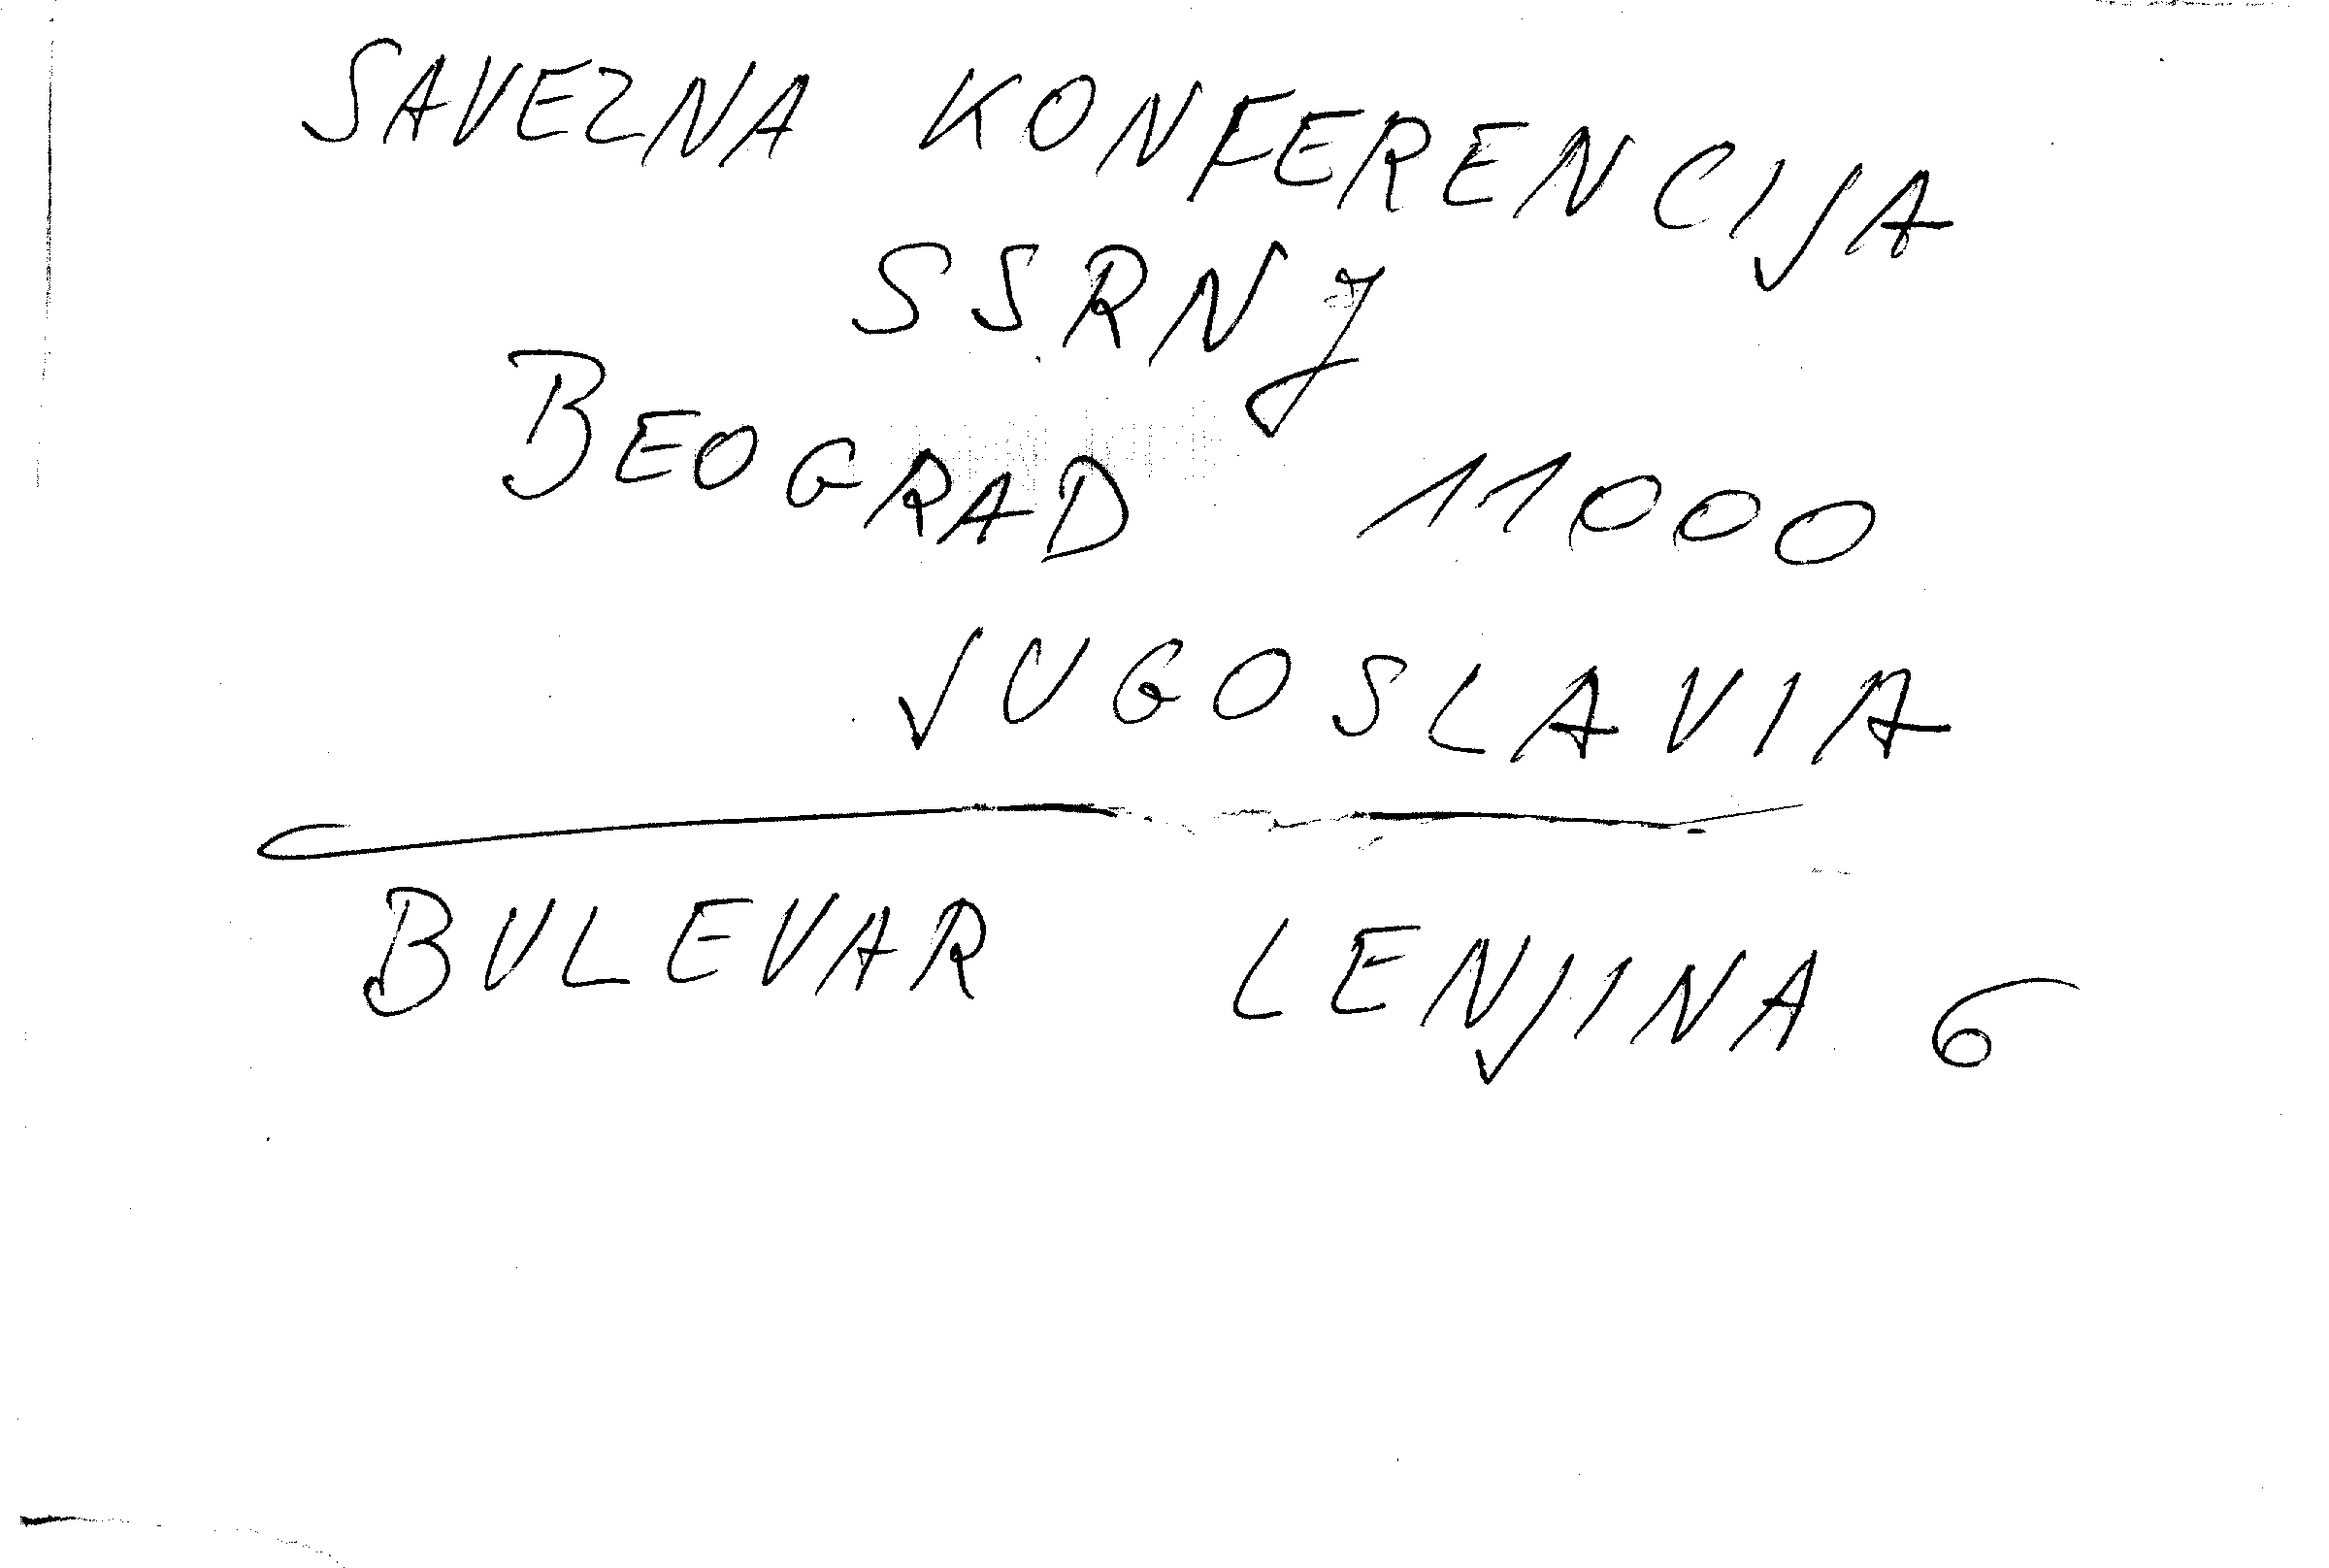 SAVEZNA KONFERENCIJA
SSRNJ
BEOGRAD 11000
JUGOSLAVIA
BULEVAR LENJINA 6